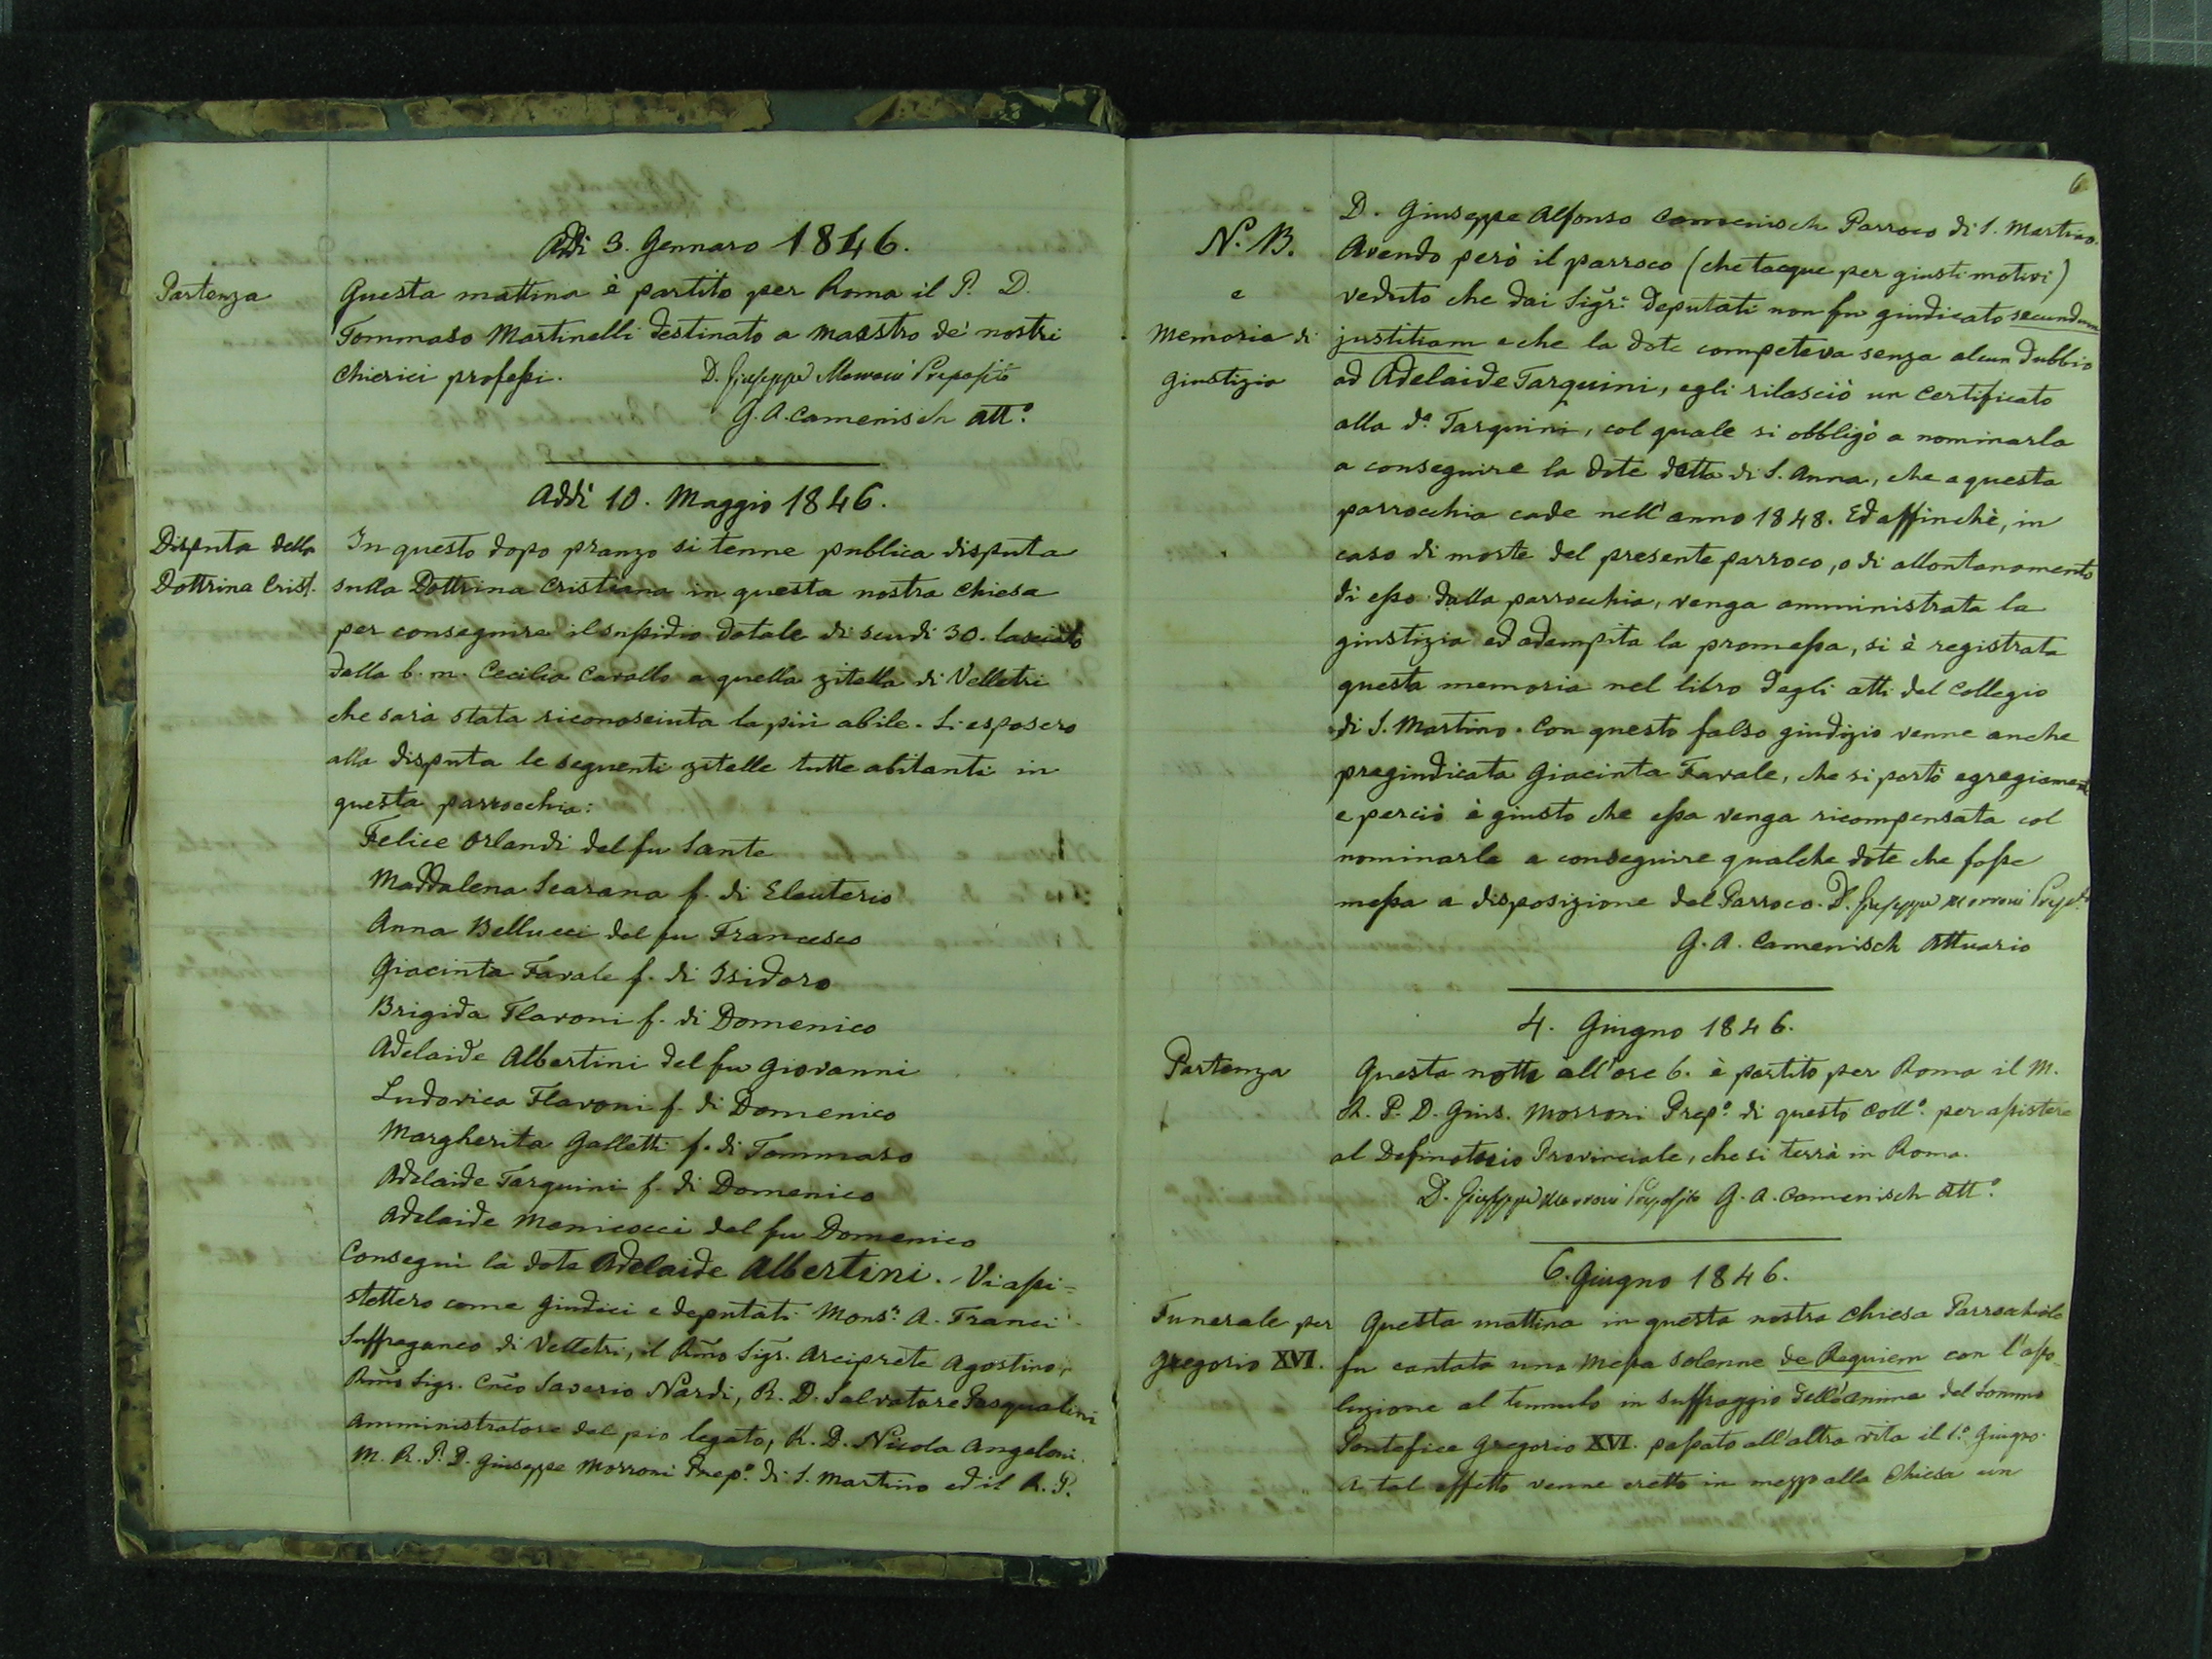 Addi 3. Gennaro 1846.
Partenza
Questa mattina è partito per Roma il P. D.
Tommaso Martinelli destinato a maestro de' nostri
Chierici professi. D. Giuseppe Morroni Preposito
G. A. Camenisch Att.º
Addi 10. Maggio 1846.
Disputa della
Dottrina Crist.
In questo dopo pranzo si tenne publica disputa
sulla Dottrina Cristiana in questa nostra Chiesa
per conseguire il sussidio dotale di scudi 30. lasciato
dalla b. m. Cecilia Cavallo a quella zitella di Velletri
che sarà stata riconosciuta la più abile. Si esposero
alla disputa le seguenti zitelle tutte abitanti in
questa parrocchia:
Felice Orlandi del fu Sante
Maddalena Scarana f. di Eleuterio
Anna Bellucci del fu Francesco
Giacinta Favale f. di Isidoro
Brigida Flavoni f. di Domenico
Adelaide Albertini del fu Giovanni
Ludovica Flavoni f. di Domenico
Margherita Galletti f. di Tommaso
Adelaide Tarquini f. di Domenico
Adelaide Menicocci del fu Domenico
Conseguì la dote Adelaide Albertini. Vi assi=
stettero come Giudici e deputati Mons.r A. Franci
Suffraganeo di Velletri, il Rmo Sigr. Arciprete Agostino,
Rmo Sigr. Cnco Saverio Nardi, R. D. Salvatore Pasqualini
Amministratore del pio legato, R. D. Nicola Angeloni,
M. R. P. D. Giuseppe Morroni Prep.º di S. Martino ed il R. P.
6
D. Giuseppe Alfonso Camenisch Parroco di S. Martino.
N. B.
e
Memoria di
Giustizia
Avendo però il parroco (che tacque per giusti motivi)
veduto che dai Sigr.i Deputati non fu giudicato secundum
justitiam e che la dote competeva senza alcun dubbio
ad Adelaide Tarquini, egli rilasciò un Certificato
alla d.a Tarquini, col quale si obbligò a nominarla
a conseguire la dote detta di S. Anna, che a questa
parrocchia cade nell'anno 1848. Ed affinchè, in
caso di morte del presente parroco, o di allontanamento
di esso dalla parrocchia, venga amministrata la
giustizia ed adempita la promessa, si è registrata
questa memoria nel libro degli atti del Collegio
di S. Martino. Con questo falso giudizio venne anche
pregiudicata Giacinta Favale, che si portò egregiament
e perciò è giusto che essa venga ricompensata col
nominarla a conseguire qualche dote che fosse
messa a disposizione del Parroco. D. Giuseppe Morroni Prep.to
G. A. Camenisch Attuario
4. Giugno 1846.
Partenza
Questa notte all'ore 6. è partito per Roma il M.
R. P. D. Gius. Morroni Prep.º di questo Coll.º per assistere
al Definitorio Provinciale, che si terrà in Roma.
D. Giuseppe Morroni Preposito G. A. Camenisch Att.º
6. Giugno 1846.
Funerale per
Gregorio XVI.
Questa mattina in questa nostra Chiesa Parrochiale
fu cantata una Messa solenne de Requiem con l'asso-
luzione al tumulo in suffraggio dell'anima del Sommo
Pontefice Gregorio XVI. passato all'altra vita il 1.º Giugno.
A tal effetto venne eretto in mezzo alla Chiesa un